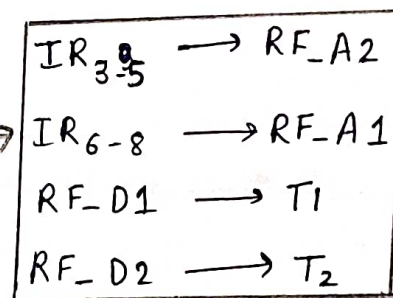 IR3-5 → RF_A2
IR6-8 → RF_A1
RF_D1 → T1
RF_D2 → T2